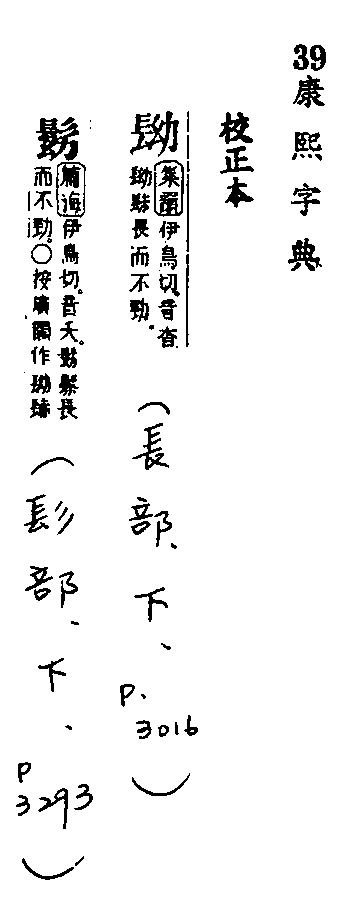 39康熙字典
校正本
集韻伊鳥切。音杳
長而不勁。
(長部、下、P.3016)
篇海伊鳥切。音夭。長
而不勁。〇按廣韻作
(髟部、下、P3293)